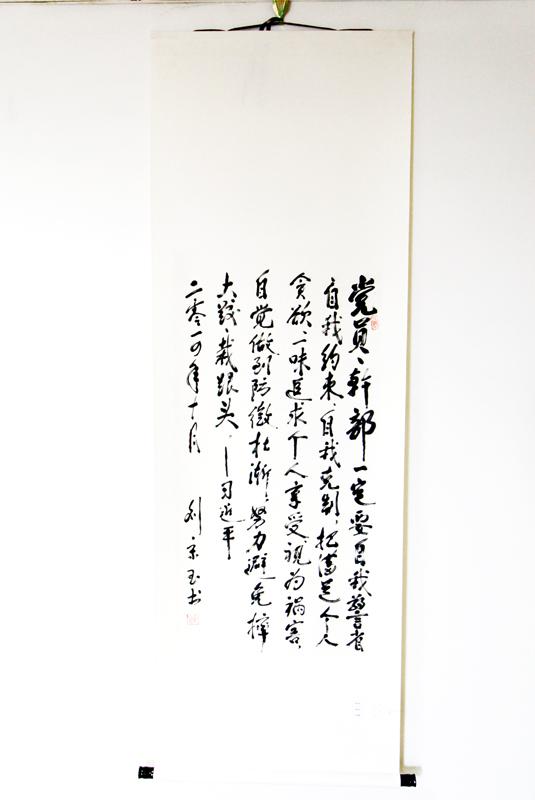 党員、幹部一定要自我警省
自我约束、自我克制、把满足个人
贪欲、一味追求个人享受视为祸害、
自觉做到防微杜渐、努力避免摔
大跤、栽跟头。——习近平
二零一四年十月 刘京玉书